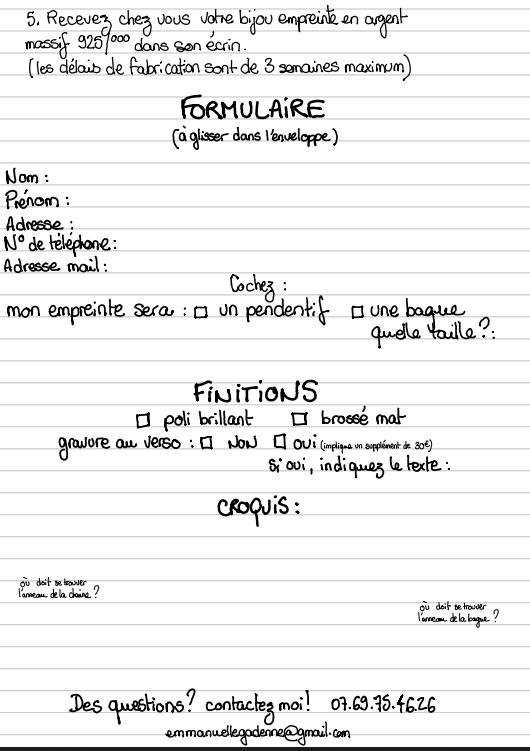 5. Recevez chez vous votre bijou empreinte en argent
massif 925/000 dans son écrin.
(les délais de fabrication sont de 3 semaines maximum)
FORMULAIRE
(à glisser dans l'enveloppe)
Nom :
Prénom :
Adresse :
N° de téléphone :
Adresse mail :
Cochez :
mon empreinte sera : □ un pendentif □ une bague
quelle taille ? :
FINITIONS
□ poli brillant □ brossé mat
gravure au verso : □ NON □ OUI (implique un supplément de 30€)
Si oui, indiquez le texte :
CROQUIS :
où doit se trouver
l'anneau de la chaine ?
où doit se trouver
l'anneau de la bague ?
Des questions ? contactez moi ! 07.69.75.46.26
emmanuellegadenne@gmail.com